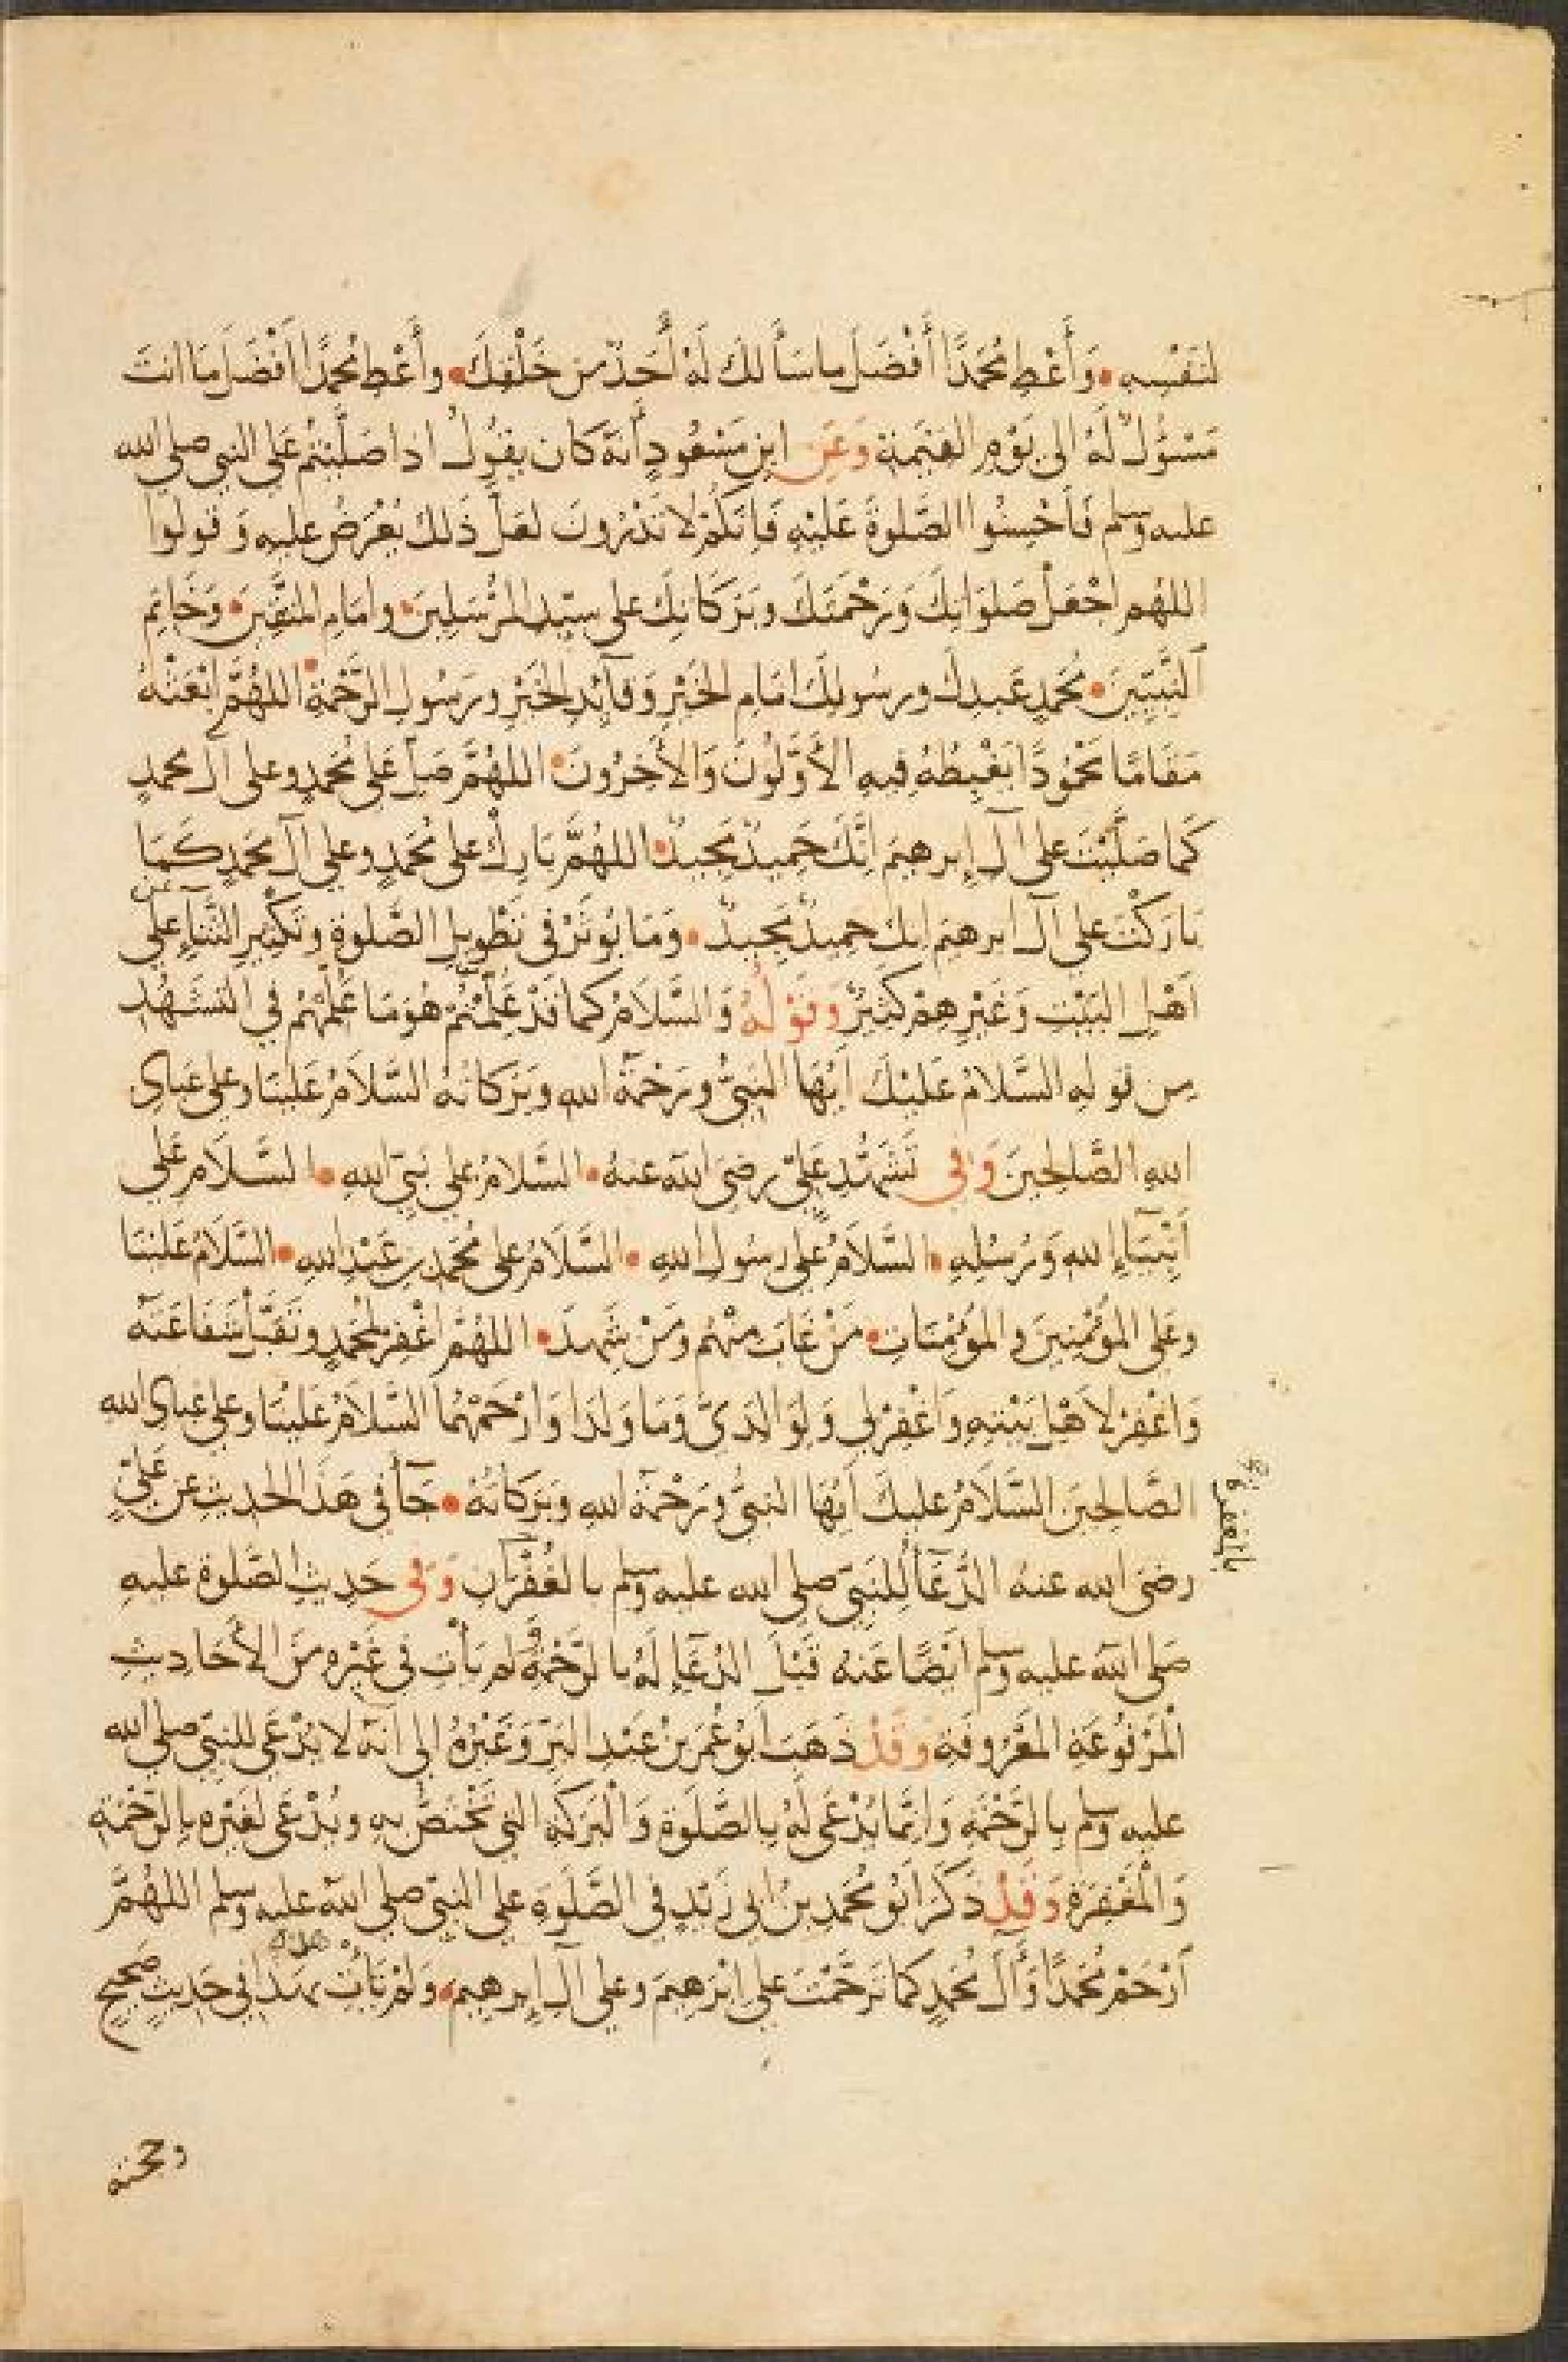 لنَفْسِهِ • وَأَعْطِ مُحَمَّدًا أَفْضَلَ مَا سَأَلَكَ لَهُ أَحَدٌ مِن خَلْقِكَ • وأَعْطِ مُحَمَّدًا أَفْضَلَ مَا انتَ
مَسْئُولٌ لَهُ الى يَوْمِ القِيَمَةِ وَعَن ابنِ مَسْعُودٍ أَنَّهُ كان يقُولُ اذا صَلَّيْتُمْ عَلى النبي صلى الله
عليه وسلم فَأَحْسِنُوا الصَّلوةَ عَلَيْهِ فَإِنَّكُمْ لَا تَدْرُونَ لعَلَّ ذَلِكَ يُعْرَضُ عليهِ وَقولوا
اللهُم اجْعَلْ صَلوَاتِكَ وَرَحْمَتَكَ وبَرَكَاتِكَ على سيّدِ المُرْسَلِينَ • وامَامِ المتَّقِينَ • وَخَاتِمِ
النَّبِيّينَ • مُحَمدٍ عَبدِكَ ورسُولِكَ امَامِ الخَيْرِ وَقآئدِ الخَيْرِ ورَسُولِ الرَّحْمَةِ • اللهُمَّ ابْعَثْهُ
مَقَامًا مَحْمُودًا يَغْبِطُهُ فِيهِ الأَوَّلُونَ وَالآخِرُونَ • اللهُمَّ صَلِّ عَلى مُحمدٍ وعلى آل محمدٍ
كَمَا صَلَّيْتَ على آلِ إبرهيمَ إِنَّكَ حَمِيدٌ مَجِيدٌ • اللهُمَّ بَارِكْ على مُحَمدٍ وعلى آلِ محمدٍ كَمَا
بَارَكْتَ على آل ابرهيم انك حميدٌ مَجِيدٌ • وَمَا يُوثَرُ فى تَطْوِيلِ الصَّلوةِ وتَكْثِيرِ الثَّنَآءِ عَلى
اَهْلِ البَيْتِ وَغَيْرِهِمْ كَثِيرٌ وَقَوْلُهُ وَالسَّلَامُ كما قَدْ عُلِّمْتُمْ هُوَ مَا عَلَّمَهُمْ في التَّشَهُّدِ
مِن قولِهِ السَّلامُ عَلَيْكَ أيُّهَا النبيُّ ورَحْمَةُ اللهِ وبَرَكاتُهُ السَّلَامُ عَلَينَا وعلى عبادِ
اللهِ الصَّالحِينَ وَفى تَشَهُّدِ عَلِيّ رضىَ اللهُ عنهُ • السَّلامُ على نبيّ اللهِ • السَّلَامُ عَلى
أَنْبِيَآءِ اللهِ وَرُسُلِهِ • السَّلَامُ على رسولِ اللهِ • السَّلَامُ على مُحَمدِ بنِ عَبْدِ اللهِ • السَّلَامُ عَلَيْنَا
وعَلى المؤمِنِينَ والمؤمِنَاتِ • مَنْ غَابَ مِنْهُم ومَنْ شَهِدَ • اللهُمَّ اغْفِرْ لمحُمدٍ وتَقَبَّلْ شَفَاعَتَهُ
وَاغْفِرْ لأَهْلِ بَيْتِهِ وَاغْفِرْ لى وَلِوَالِدَىَّ وَمَا وَلَدَا وَارْحَمْهُمَا السَّلَامُ عَلَينَا وعلى عبادِ الله
الصَّالحِينَ السَّلَامُ عليكَ اَيُّهَا النبيُّ ورَحْمَةُ اللهِ وَبَرَكاتُهُ • جَآءَ فى هَذَا الحَدِيثِ عَن عَليّ
رضىَ الله عنهُ الدُّعَآءُ للنَبيّ صلى الله عليه وسلم بالغُفْرَانِ وَفى حَدِيثِ الصَّلوة عليهِ
بالمغفرة
صَلى الله عليه وسلم ايْضًا عَنهُ قَبْلَ الدُّعَآءِ لَهُ بالرَّحْمَةِ وَلم يَأْتِ فى غَيْرِهِ مِنَ الأَحَادِيثِ
المَرْفُوعَةِ المَعْرُوفَةِ وَقَدْ ذَهَبَ ابُو عُمَرَ بنُ عَبْدِ البَرّ وَغَيْرُهُ الى أَنَّهُ لَا يُدْعَى للنبيّ صلى الله
عليه وسلم بالرَّحْمَةِ وَانَّما يُدْعَى لَهُ بالصَّلوَةِ وَالبَرَكَةِ التي تَخْتَصُّ بهِ ويُدْعَى لغَيْرِهِ بالرَّحْمَةِ
وَالمَغْفِرَةِ وَقَدْ ذَكَرَ ابُو مُحَمدِ بنُ ابى زَيْدٍ فى الصَّلوَةِ على النبيّ صلى الله عليه وسلم اللهُمَّ
اَرْحَمْ مُحَمَّدًا وَآلَ مُحَمدٍ كما تَرَحَّمْتَ على ابْرَهيمَ وعلى آلِ إبرهيم • وَلَمْ يَأْتِ بهَذَا فى حَدِيثٍ صَحِيحٍ
وحجته